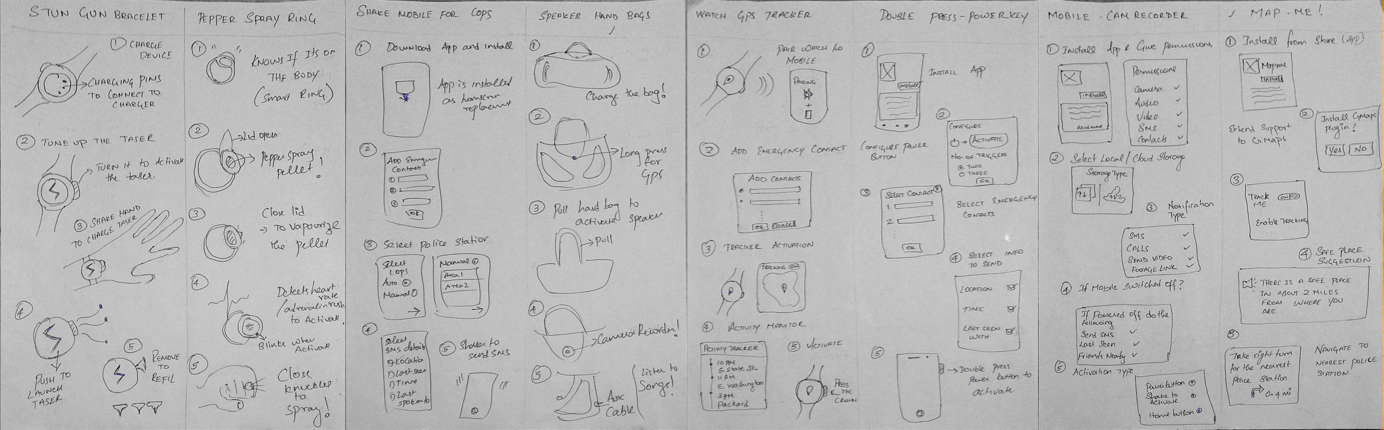 STUN GUN BRACELET
① CHARGE DEVICE
CHARGING PINS
TO CONNECT TO
CHARGER
② TUNE UP THE TASER
TURN IT to Activate
the taser.
③ SHAKE HAND
TO CHARGE TASER
④
PUSH TO
LAUNCH
TASER
⑤ REMOVE
TO
REFIL
PEPPER SPRAY RING
①
KNOWS IF ITS ON
THE BODY
(SMART RING)
②
Lid open
Pepper Spray
pellet!
③
Close lid
→ To Vapourize
the pellet
④
Detects heart
rate
/adrenalin rush
to Activate
Blinks when
Activated
⑤
Close
knuckles to
Spray!
SHAKE MOBILE FOR COPS
① Download App and install
App is installed
as homescreen
replacement
②
Add Emergency
Contact
①
②
③
OK
③ Select Police Station
Select
Cops
Auto
Manual
Manual
Area 1
Area 2
④
Select
SMS details
Location
Last seen
Time
Last
spoke with
⑤ Shake to
send SMS
SPEAKER HAND BAGS
①
Charge the bag!
②
Long press
for
GPS
③ Pull hand bag to
activate speaker
Pull
④
Camera Recorder!
⑤
Aux
Cable
Listen to
Songs!
WATCH GPS TRACKER
①
PAIR WATCH to
MOBILE
PAIRING
② ADD EMERGENCY CONTACT
ADD CONTACTS
OK
Cancel
③ TRACKER ACTIVATION
TRACKING ON
④ ACTIVITY MONITOR
ACTIVITY TRACKER
10 AM
S. State St.
11 AM
E. Washington
3 PM
Packard
⑤ ACTIVATE
PRESS
THE
CROWN
DOUBLE PRESS-POWER KEY
①
INSTALL APP
Install
②
CONFIGURE POWER
BUTTON
CONFIGURE
ACTIVATE
NO. OF TRIGGER
TWO
THREE
OK
③
SELECT CONTACT
1.
2.
OK
SELECT EMERGENCY
CONTACTS
④ SELECT INFO
TO SEND
LOCATION
TIME
LAST SEEN
WITH
⑤
→ Double Press
Power button to
activate
MOBILE-CAM RECORDER
① Install App & Give Permissions
Install
Permissions
Camera ✓
Audio ✓
Video ✓
SMS ✓
Contacts ✓
② Select Local/Cloud Storage
Storage Type
③ Notification
Type
SMS ✓
CALLS ✓
SEND VIDEO ✓
FOOTAGE LINK ✓
④ If Mobile Switched off?
If Powered off do the
following
Send SMS ✓
Last Seen ✓
Friends Nearby ✓
⑤ Activation Type
Power button
Shake to
Activate
Home button
✓ MAP-ME!
① Install from Store (App)
Mapme
Install
Extend Support
to GMaps
②
Install GMaps
plugin?
Yes
NO
③
Track
ME
Enable Tracking
④ SAFE PLACE
SUGGESTION
THERE IS A SAFE PLACE
IN ABOUT 2 MILES
FROM WHERE YOU
ARE
⑤
Take right turn
for the nearest
police Station
0.4 mi
NAVIGATE TO
NEAREST POLICE
STATION